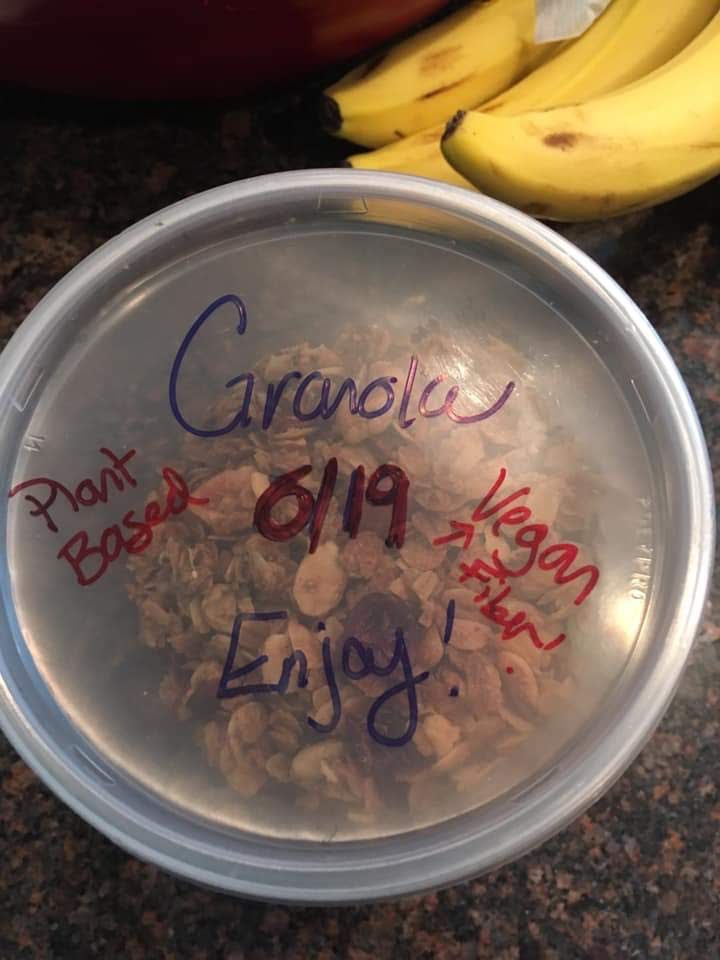 Granola
Plant
Based
6/19
Vegan
Enjoy!